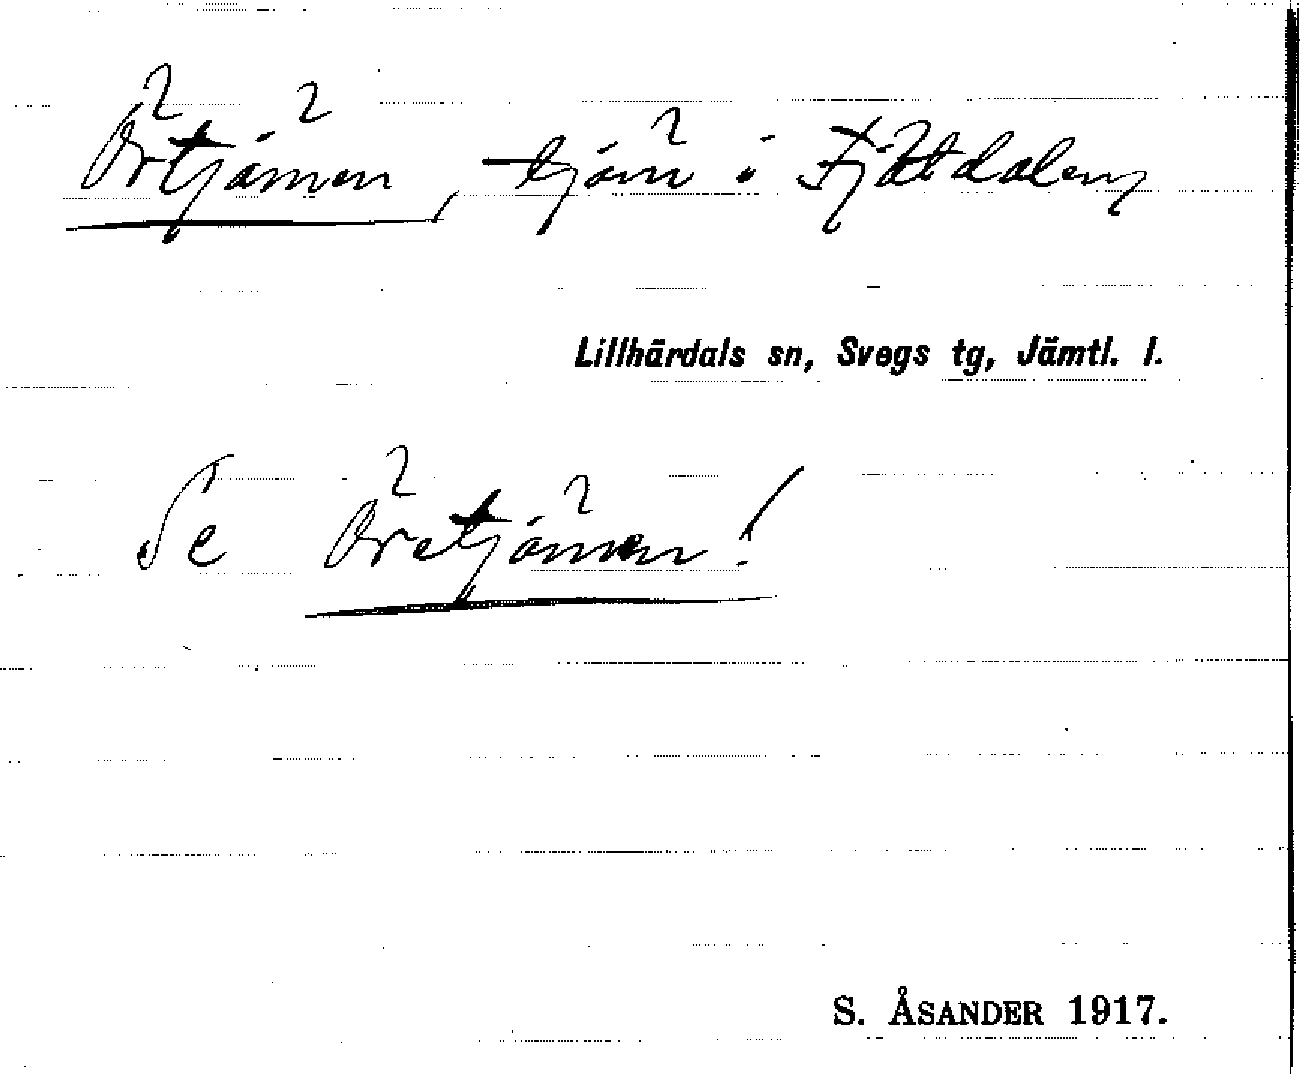 Örtjärnen, tjärn i Fjätdalen,
Lillhärdals sn, Svegs tg, Jämtl. l.
Se Öretjärnen!
S. ÅSANDER 1917.